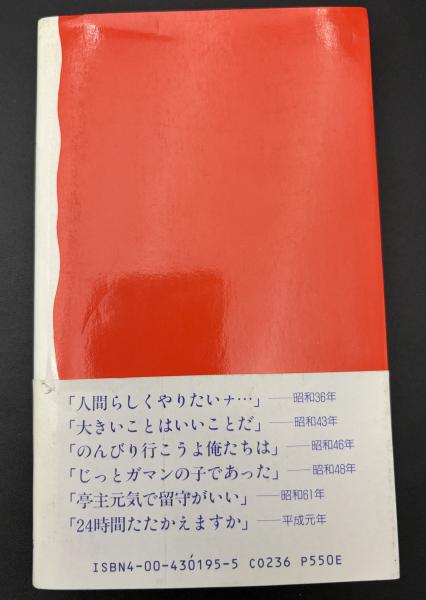 「人間らしくやりたいナ…」——昭和36年
「大きいことはいいことだ」——昭和43年
「のんびり行こうよ俺たちは」——昭和46年
「じっとガマンの子であった」——昭和48年
「亭主元気で留守がいい」——昭和61年
「24時間たたかえますか」——平成元年
ISBN4-00-430195-5 C0236 P550E